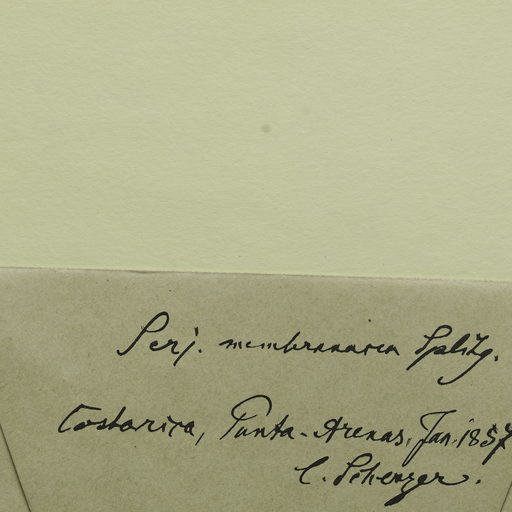 Serj. membranacea Splitg.
Costarica, Punta-Arenas, Jan. 1857
C. Scherzer.